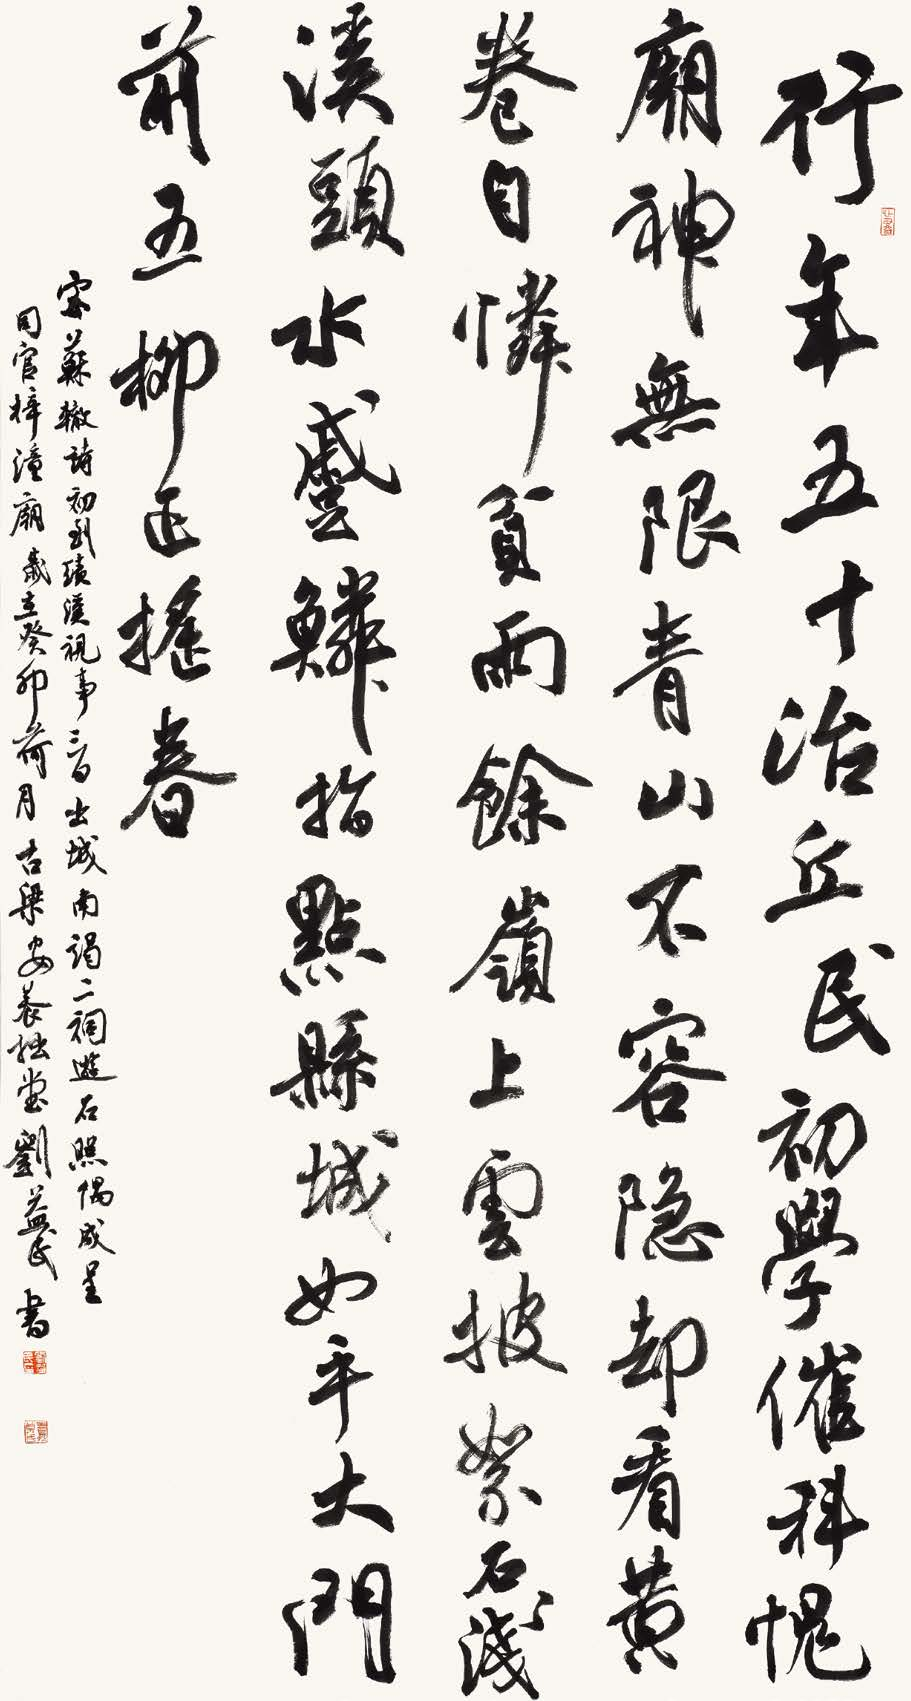 行年五十治丘民初學催科愧
廟神無限青山不容隐却看黄
卷自憐貧雨餘嶺上雲披絮石淺
溪頭水蹙鱗指點縣城如手大門
前五柳正搖春
宋蘇轍詩初到績溪視事三日出城南謁二祠遊石照偶成呈
同官梓潼廟歲在癸卯荷月古梁安養拙堂劉益民書